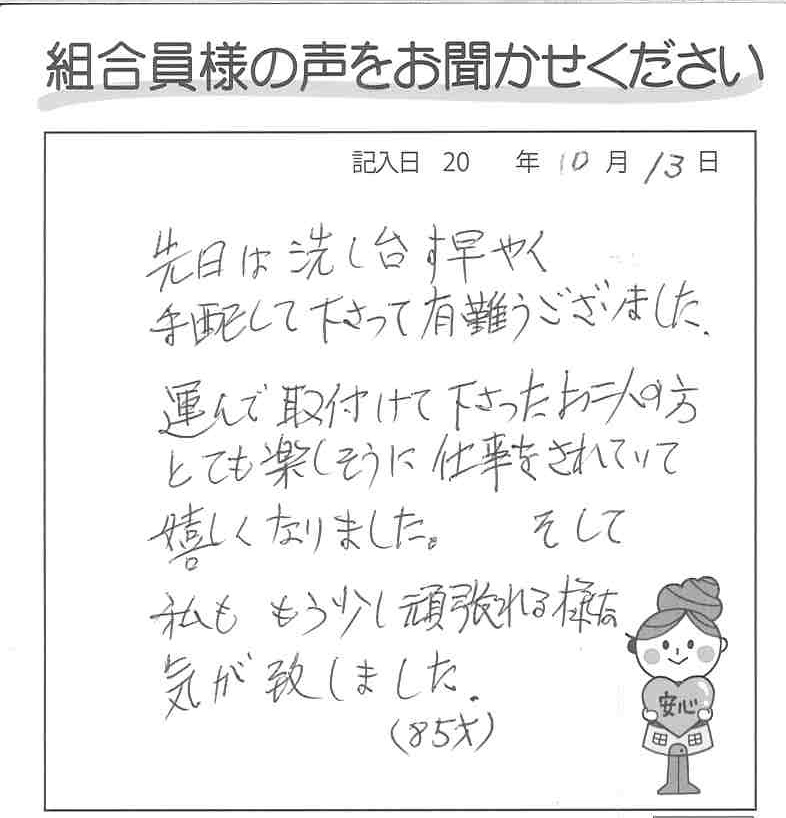 組合員様の声をお聞かせください
記入日 20 年 10 月 13 日
先日は洗し台す早やく
手配して下さって有難うございました。
運んで取付けて下さったお二人の方
とても楽しそうに仕事をされていて
嬉しくなりました。 そして
私も もう少し頑張れる様な
気が致しました。
(85才)
安心